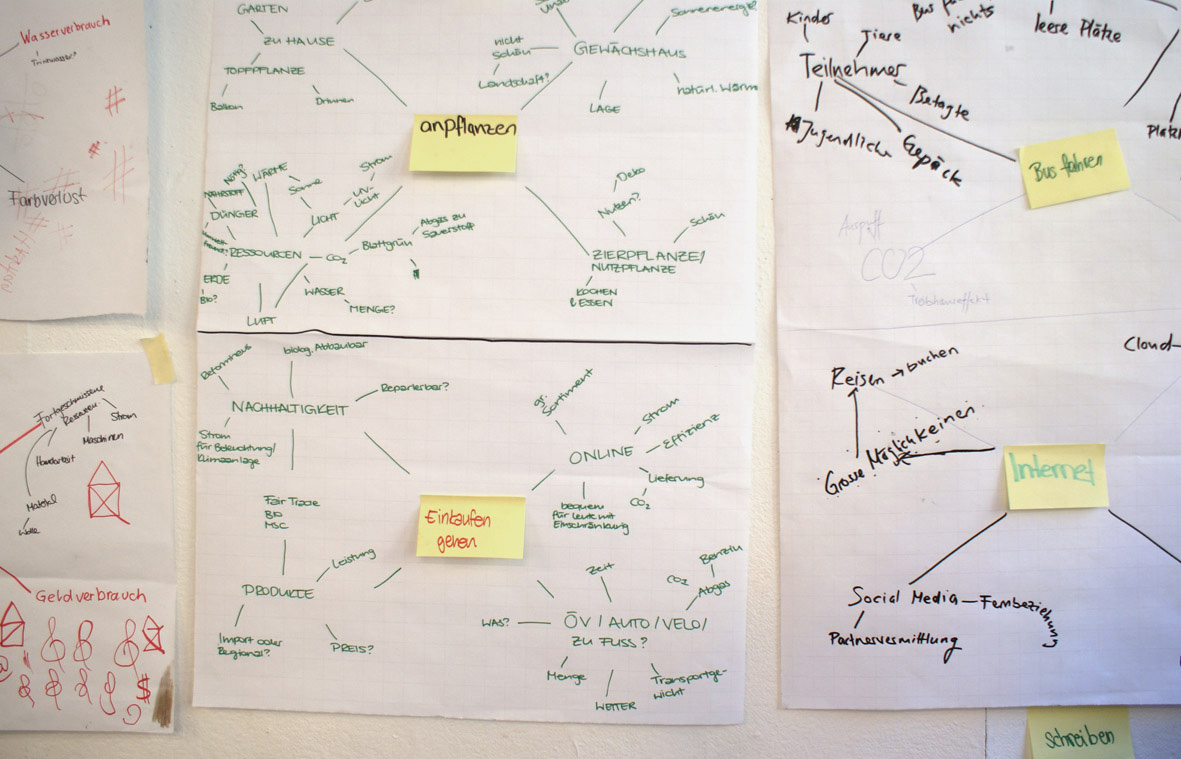 Wasserverbrauch
Trinkwasser?
Farbverlust
Fortgeschrittene
Ressourcen
Strom
Maschinen
Handarbeit
Material
Wolle
Geldverbrauch
$
GARTEN
ZU HAUSE
TOPFPFLANZE
Balkon
Drinnen
Sonnenenergie
nicht
schön
GEWÄCHSHAUS
Landschaft?
LAGE
natürl. Wärme
anpflanzen
Nötig?
WÄRME
Sonne
Strom
UV-
Licht
NÄHRSTOFF
DÜNGER
LICHT
RESSOURCEN
CO2
Blattgrün
Abgas zu
Sauerstoff
ERDE
Bio?
WASSER
MENGE?
LUFT
Deko
Nutzen?
Schön
ZIERPFLANZE/
NUTZPFLANZE
KOCHEN
& ESSEN
Reformhaus
biolog. Abbaubar
Reparierbar?
NACHHALTIGKEIT
Strom
für Beleuchtung/
Klimaanlage
Fair Trade
BIO
MSC
Leistung
PRODUKTE
Import oder
Regional?
PREIS?
Einkaufen
gehen
gr.
Sortiment
Strom
Effizienz
ONLINE
Lieferung
CO2
bequem
für Leute mit
Einschränkung
Zeit
Benzin
CO2
Abgas
WAS?
ÖV / AUTO / VELO /
ZU FUSS?
Menge
WETTER
Transportge-
wicht
Kinder
Tiere
nichts
leere Plätze
Teilnehmer
Betagte
Jugendliche
Gepäck
Bus fahren
Auspuff
CO2
Treibhauseffekt
Cloud
Reisen → buchen
Grosse Möglichkeinen
Internet
Social Media — Fernbeziehung
Partnervermittlung
schreiben